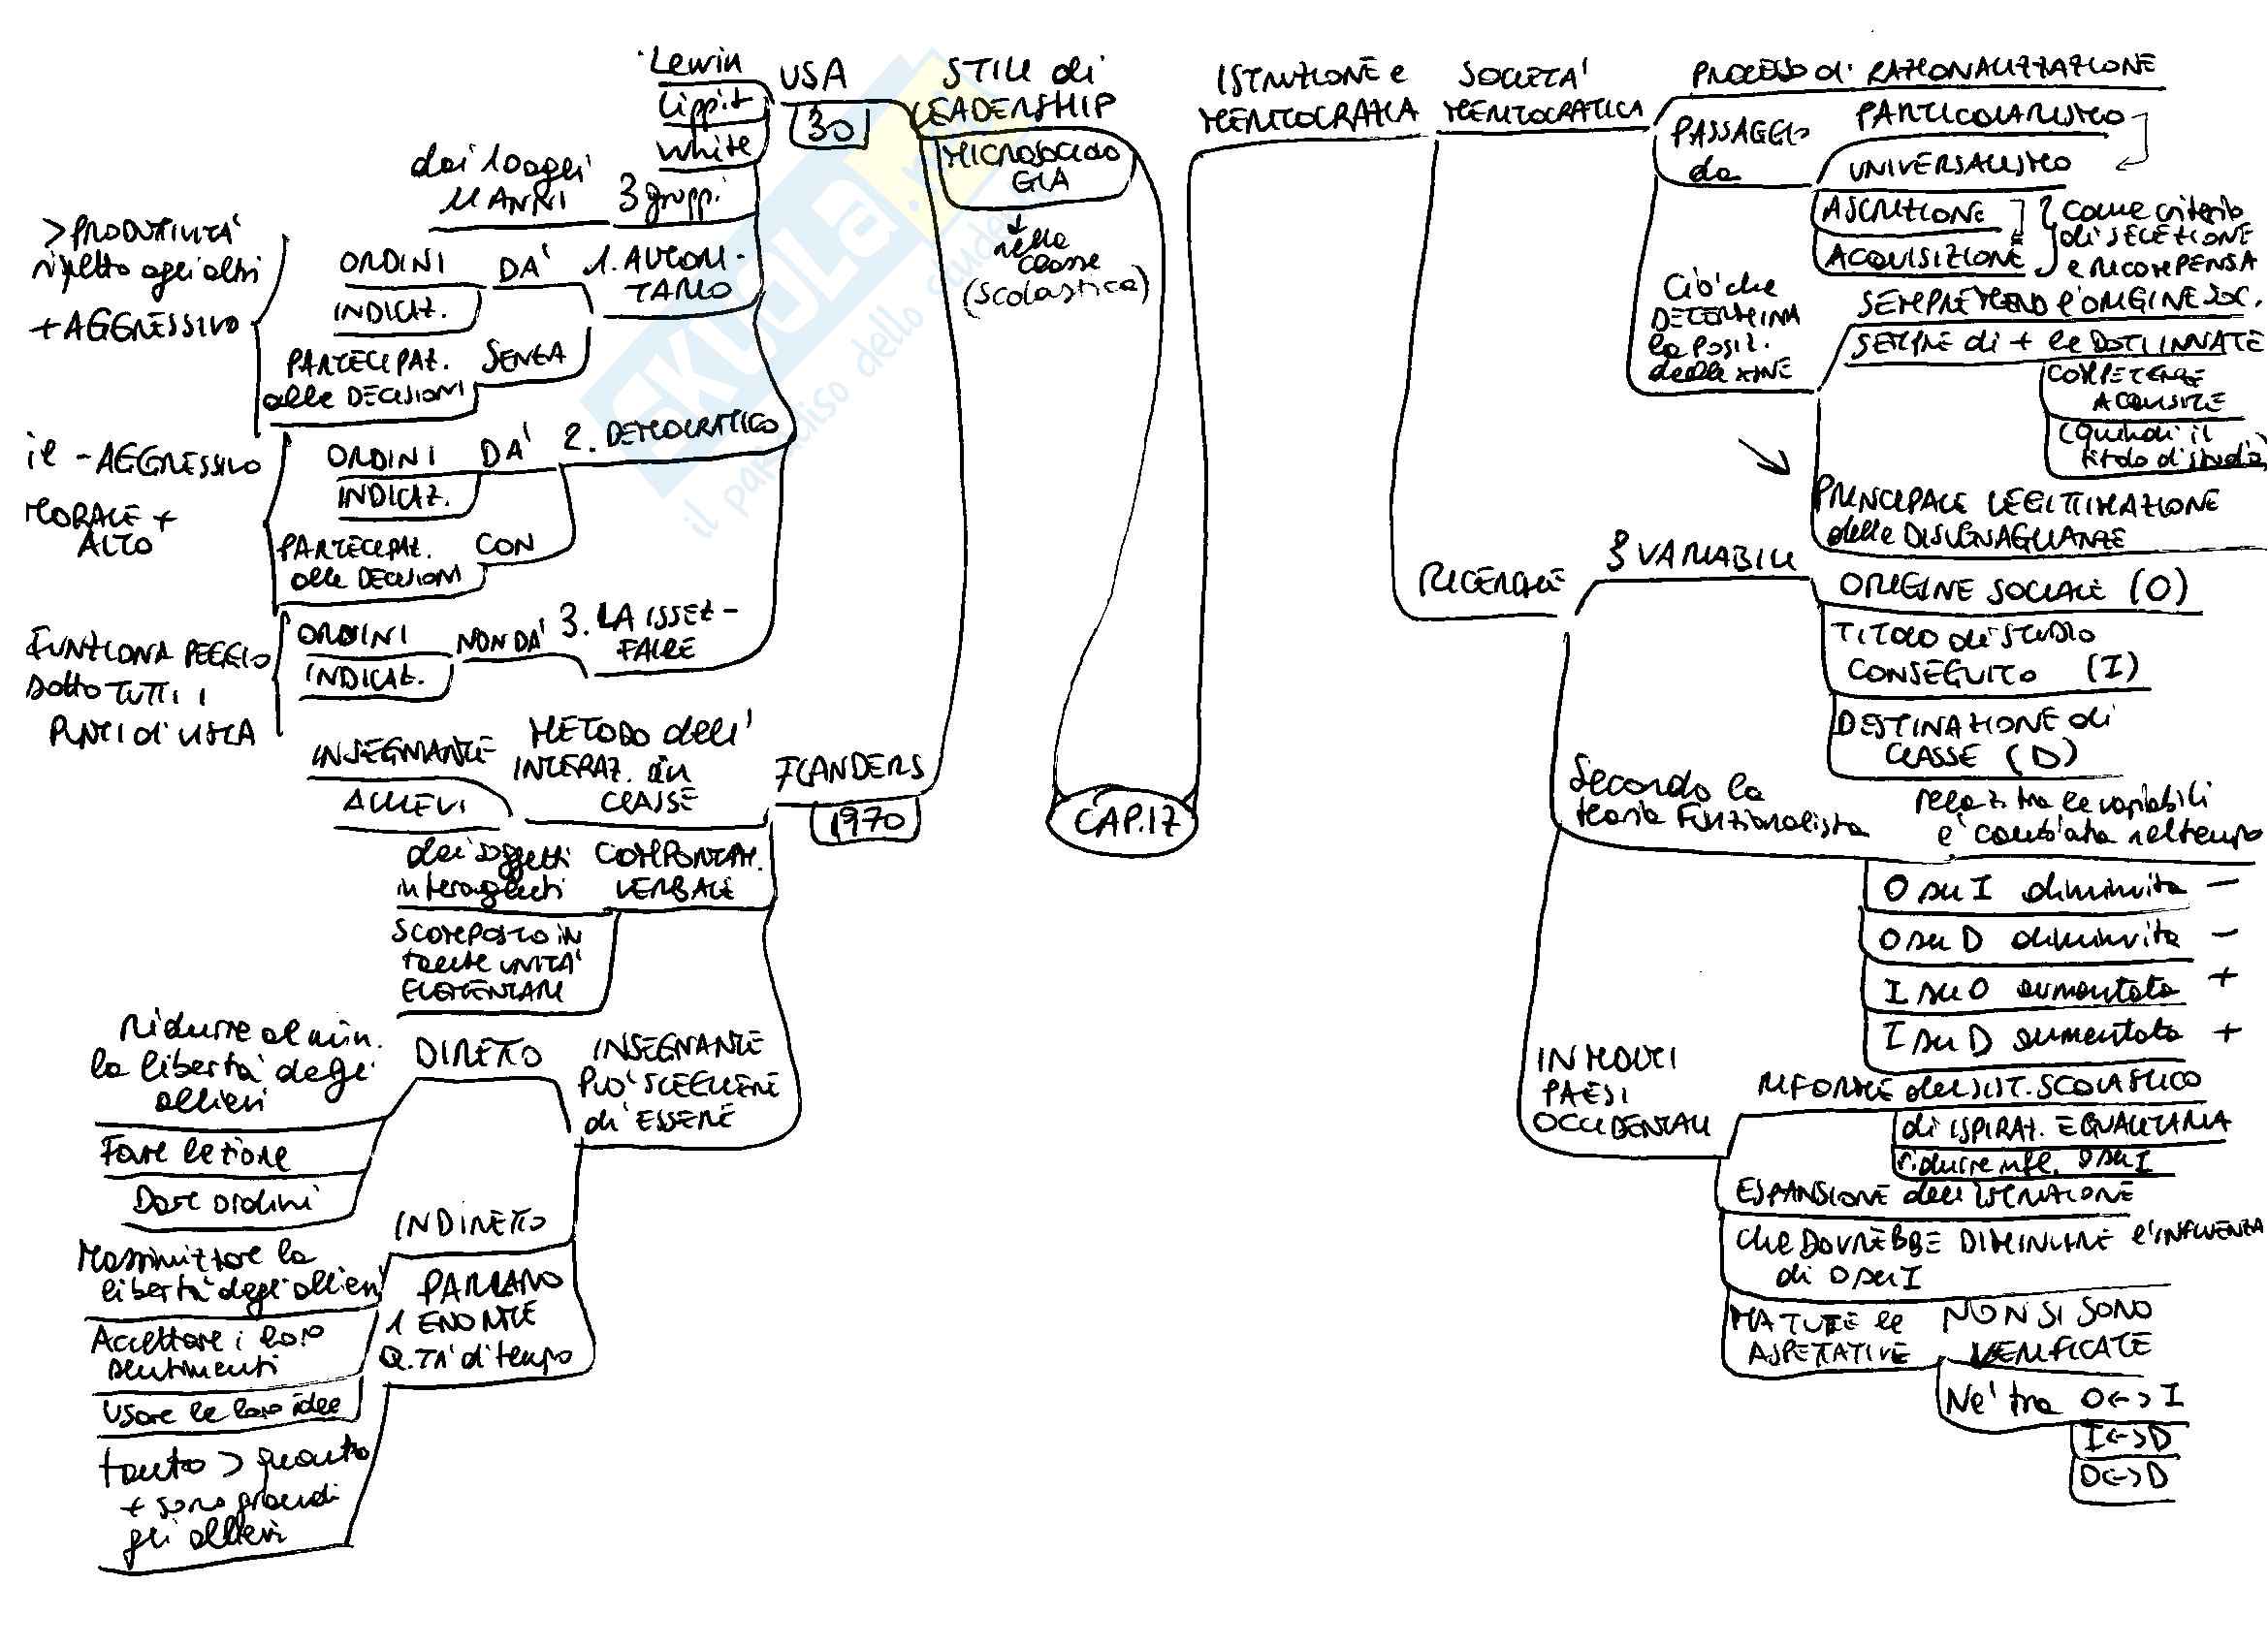 Lewin
Lippit
White
USA
30
STILI di
LEADERSHIP
MICROSOCIOLO
GIA
nella
classe
(scolastica)
dai 10 agli
11 ANNI
3 gruppi
1. AUTORI-
TARIO
DA'
ORDINI
INDICAZ.
SENZA
PARTECIPAZ.
alle DECISIONI
> PRODUTTIVITÀ
rispetto agli altri
+ AGGRESSIVO
2. DEMOCRATICO
DA'
ORDINI
INDICAZ.
CON
PARTECIPAZ.
alle DECISIONI
il - AGGRESSIVO
MORALE +
ALTO
3. LAISSEZ-
FAIRE
NON DA'
ORDINI
INDICAZ.
FUNZIONA PEGGIO
sotto TUTTI I
PUNTI di VISTA
FLANDERS
1970
METODO dell'
INTERAZ. in
CLASSE
INSEGNANTE
ALLIEVI
COMPORTAM.
VERBALE
dei soggetti
interagenti
SCOMPOSTO IN
tante UNITA'
ELEMENTARI
INSEGNANTE
PUO' SCEGLIERE
di ESSERE
DIRETTO
ridurre al min.
la libertà degli
allievi
Fare lezione
Dare ordini
INDIRETTO
Massimizzare la
libertà degli allievi
Accettare i loro
sentimenti
Usare le loro idee
PARLANO
1 ENORME
Q.TA' di tempo
tanto > quanto
+ sono grandi
gli allievi
CAP.17
ISTRUZIONE e
MERITOCRAZIA
SOCIETA'
MERITOCRATICA
PROCESSO di RAZIONALIZZAZIONE
PASSAGGIO
da
PARTICOLARISMO
UNIVERSALISMO
ASCRIZIONE
ACQUISIZIONE
come criterio
di SELEZIONE
e RICOMPENSA
Ciò che
DETERMINA
la posiz.
SEMPRE MENO l'ORIGINE SOC.
SEMPRE di + le DOTI INNATE
COMPETENZE
ACQUISITE
(quindi il
titolo di studio)
PRINCIPALE LEGITTIMAZIONE
delle DISUGUAGLIANZE
RICERCHE
3 VARIABILI
ORIGINE SOCIALE (O)
TITOLO di STUDIO
CONSEGUITO (I)
DESTINAZIONE di
CLASSE (D)
Secondo la
teoria Funzionalista
relaz. tra le variabili
e' cambiata nel tempo
O su I diminuita -
O su D diminuita -
I su O aumentata +
I su D aumentata +
IN MOLTI
PAESI
OCCIDENTALI
RIFORME del SIST. SCOLASTICO
di ISPIRAZ. EGUALITARIA
ridurre infl. O su I
ESPANSIONE dell'ISTRUZIONE
che DOVREBBE DIMINUIRE l'INFLUENZA
di O su I
MA TUTTE le
ASPETTATIVE
NON SI SONO
VERIFICATE
Ne' tra O<->I
I<->D
O<->D
SKUOLA.NET
il paradiso dello studente